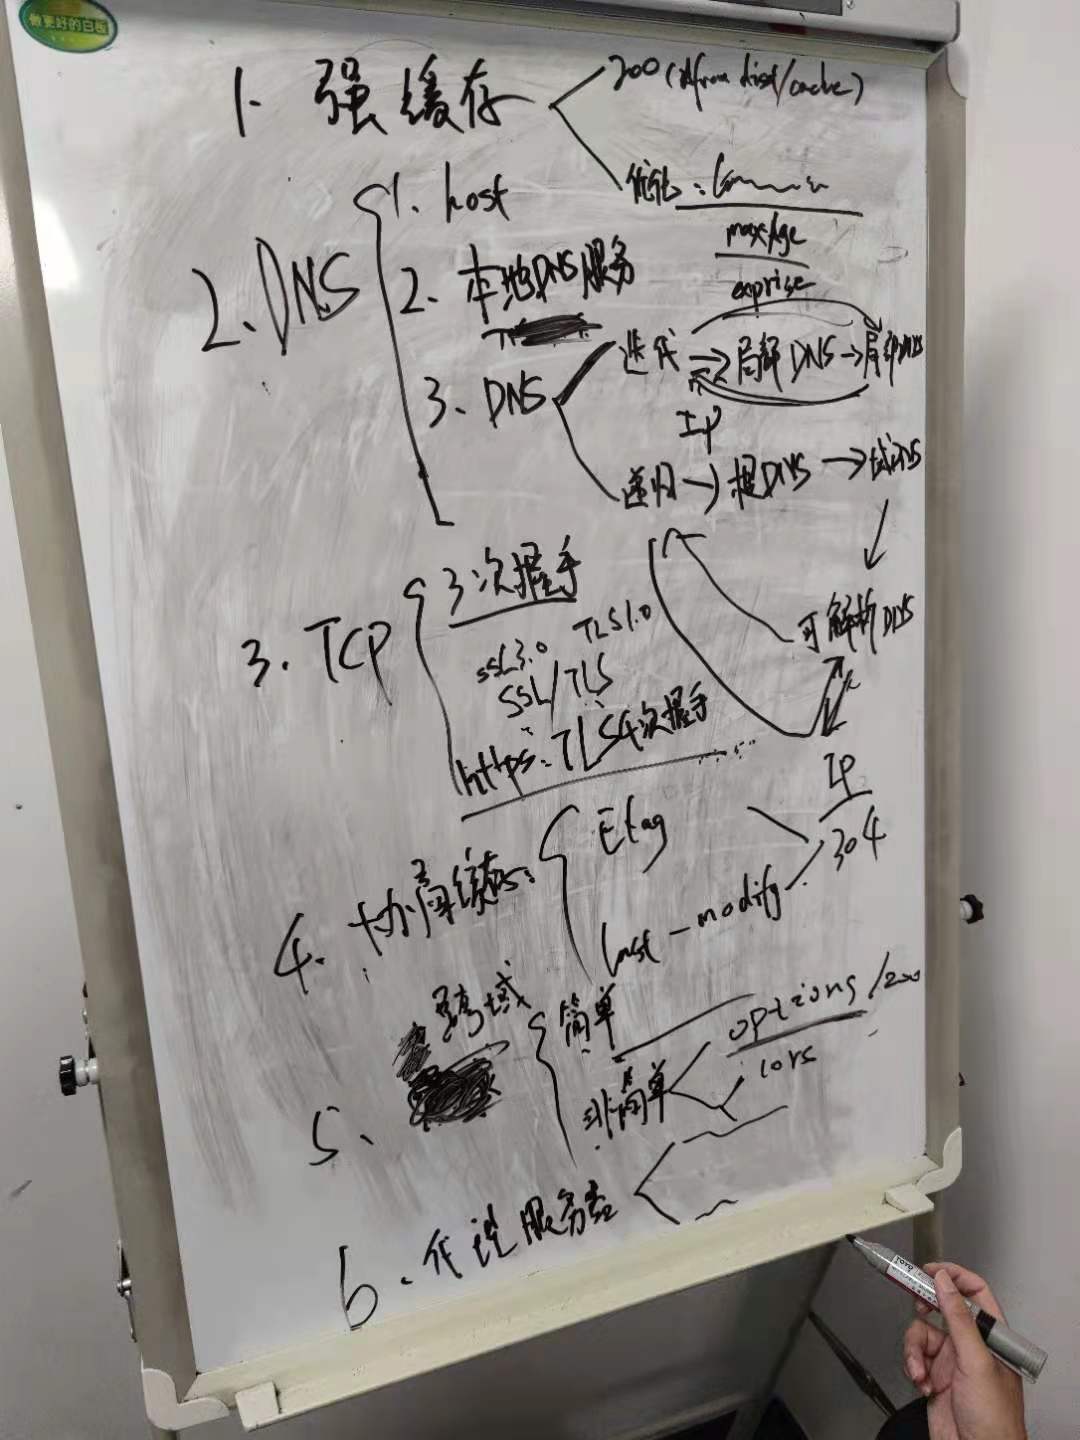 做更好的白板
1. 强缓存
200 (from disk/cache)
优化:
maxAge
exprise
2. DNS
1. host
2. 本地DNS服务
3. DNS
迭代 → 局部DNS → 局部DNS
IP
递归 → 根DNS → 域DNS
可解析DNS
IP
3. TCP
3次握手
SSL3.0 TLS1.0
SSL/TLS
https: TLS4次握手
4. 协商缓存:
Etag
last-modify
304
5. 跨域
简单
非简单
options/200
cors
6. 代理服务器